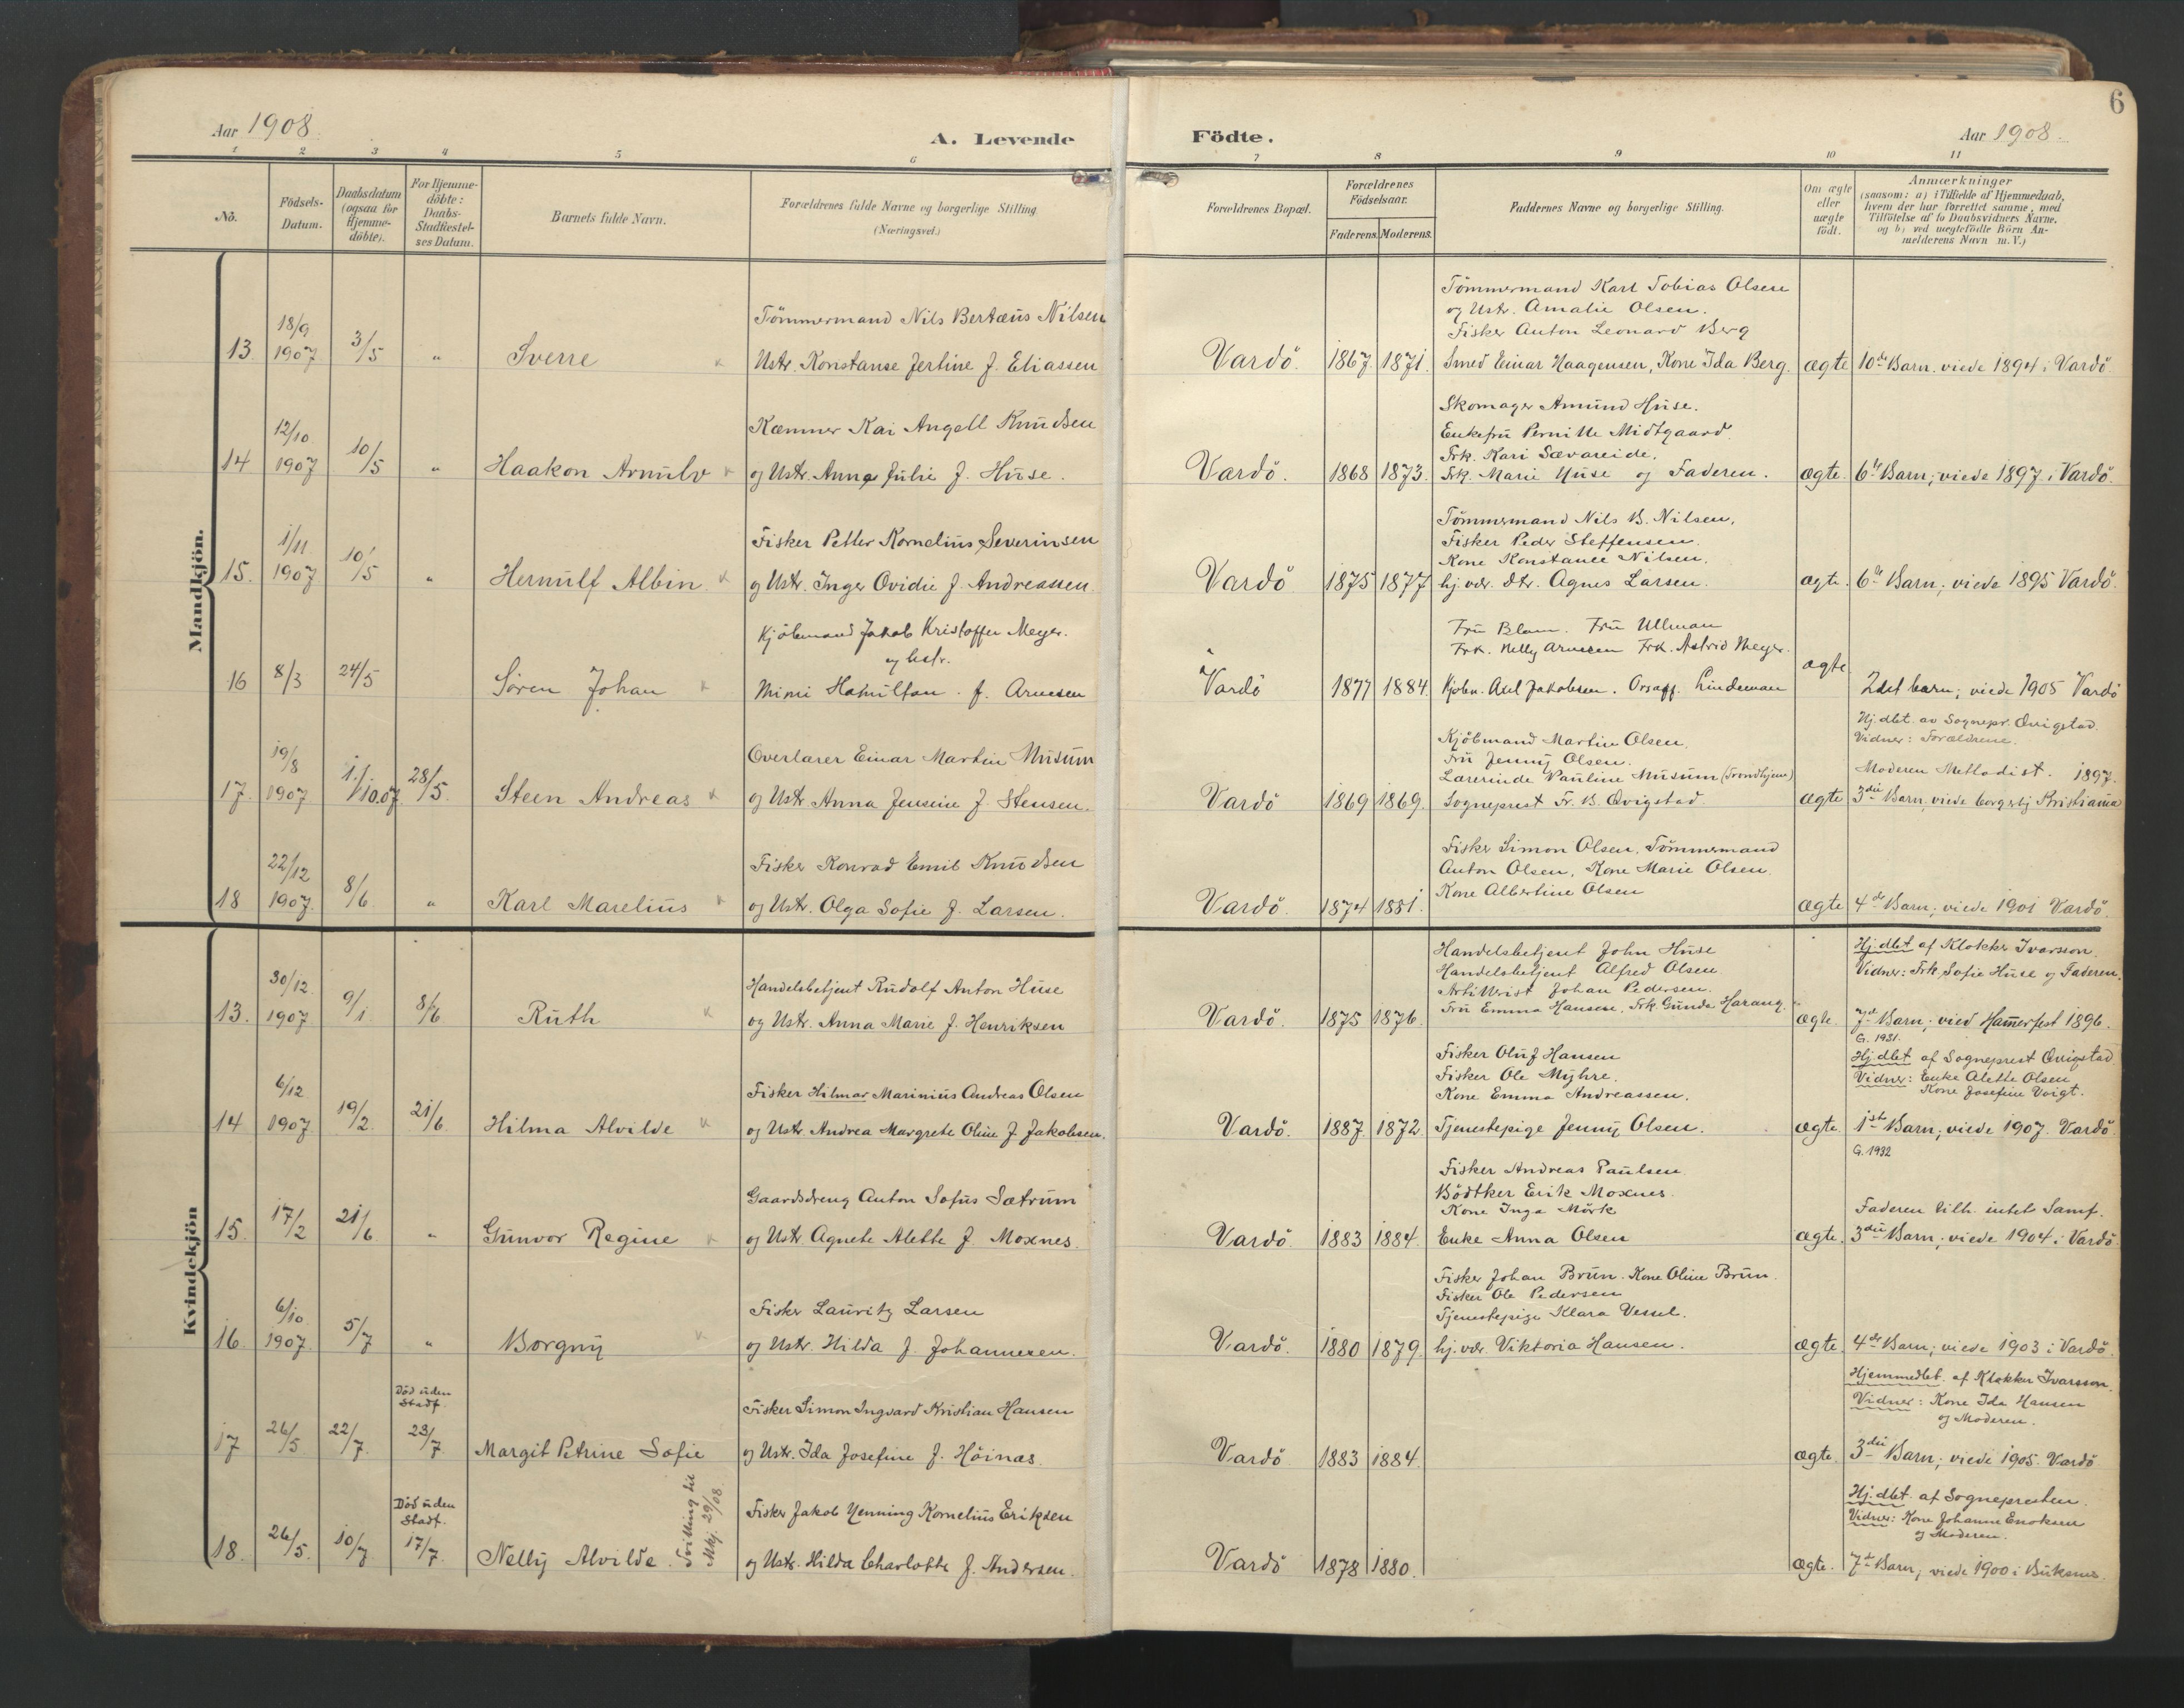 Aar 1908.
A. Levende Födte.
Aar 1908.
6
1 2 3 4 5 6 7 8 9 10 11
No.
Födsels-
Datum.
Daabsdatum
(ogsaa for
Hjemme-
döbte).
For Hjemme-
döbte:
Daabs-
Stadfæstel-
ses Datum.
Barnets fulde Navn.
Forældrenes fulde Navne og borgerlige Stilling
(Næringsvei.)
Forældrenes Bopæl.
Forældrenes
Födselsaar.
Faderens. Moderens.
Faddernes Navne og borgerlige Stilling.
Om ægte
eller
uægte
födt.
Anmærkninger
(saasom: a) i Tilfælde af Hjemmedaab,
hvem der har forrettet samme, med
Tilföielse af to Daabsvidners Navne,
og b) ved uægtefödte Börn An-
melderens Navn m. V.)
Mandkjön.
13. 18/9 1907 3/5 " Sverre
Tömmermand Nils Bertæus Nilsen
Ustr. Konstanse Jertine f. Eliassen
Vardö. 1867. 1871.
Tömmermand Karl Tobias Olsen
og Ustr. Amalie Olsen.
Fisker Anton Leonard Berg
Smed Einar Haagensen, Kone Ida Berg.
ægte 10de Barn. viede 1894 i Vardö.
14 12/10 1907 10/5 " Haakon Arnulv
Kæmner Kai Angell Knudsen
og Ustr. Anna Julie f. Huse.
Vardö. 1868 1873.
Skomager Amund Huse.
Enkefru Pernille Midtgaard.
Frk. Kari Sævareide,
Frk. Marie Huse og Faderen.
ægte. 6te Barn; viede 1897 i Vardö.
15. 1/11 1907 10/5 " Hernulf Albin
Fisker Petter Kornelius Severinsen
og Ustr. Inger Ovidie f. Andreassen.
Vardö 1875 1877
Tömmermand Nils B. Nilsen,
Fisker Peder Steffensen.
Kone Konstance Nilsen.
hj.vær. dtr. Agnes Larsen.
ægte. 6te Barn; viede 1895 Vardö.
16 8/3 24/5 Søren Johan
Kjöbmand Jakob Kristoffer Meyer.
og Ustr.
Mimi Hamilton f. Arnesen
Vardö 1877 1884.
Fru Blom. Fru Ullman
Frk. Nelly Arnesen Frk. Astrid Meyer.
Kjöbm. Axel Jakobsen. Lindeman
ægte 2det barn; viede 1905 Vardö
17. 19/8 1907 1/10.07 28/5. Steen Andreas
Overlærer Einar Martin Musum
og Ustr. Anna Jensine f. Stensen.
Vardö 1869 1869.
Kjöbmand Martin Olsen.
Fru Jenny Olsen.
Lærerinde Pauline Musum (Trondhjem)
Sogneprest Fr. B. Qvigstad.
ægte
Hj.dbt. av Sognepr. Qvigstad.
Vidner: Forældrene.
Moderen Methodist. 1897.
3die Barn, viede borgerlig Kristiania
18 22/12 1907. 8/6. " Karl Marelius
Fisker Konrad Emil Knudsen
og Ustr. Olga Sofie f. Larsen.
Vardö. 1874 1881.
Fisker Simon Olsen, Tömmermand
Anton Olsen, Kone Marie Olsen.
Kone Albertine Olsen
ægte 4de Barn; viede 1901 Vardö.
Kvindekjön
13. 30/12. 1907 9/1 8/6 Ruth
Handelsbetjent Rudolf Anton Huse
og Ustr. Anna Marie f. Henriksen
Vardö. 1875 1876.
Handelsbetjent John Huse
Handelsbetjent Alfred Olsen.
Artillerist Johan Pedersen.
Fru Emma Hansen, Frk. Gunda Harang.
ægte.
Hj.dbt af Klokker Ivarsson.
Vidner: Frk. Sofie Huse og Faderen.
7de Barn; vied Hamerfest 1896.
G. 1931.
14 6/12 1907 19/2. 21/6. Hilma Alvilde
Fisker Hilmar Marinius Andreas Olsen
og Ustr. Andrea Margrete Oline f. Jakobsen.
Vardö. 1887. 1872.
Fisker Oluf Hansen
Fisker Ole Myhre.
Kone Emma Andreassen.
Tjenestepige Jenny Olsen.
ægte.
Hj.dbt af Sogneprest Qvigstad
Vidner: Enke Alette Olsen
Kone Josefine Voigt.
1st Barn; viede 1907. Vardö.
G. 1932
15. 17/2 21/6 " Gunvor Regine
Gaardsdreng Anton Sofus Sætrum
og Ustr. Agnete Alette f. Moxnes.
Vardö. 1883 1884.
Fisker Andreas Paulsen.
Bödtker Erik Moxnes.
Kone Inga Mörk
Enke Anna Olsen
ægte.
Faderen tilh. intet Samf.
3die Barn; viede 1904 i Vardö.
16. 6/10 1907. 5/7 " Borgny
Fisker Lauritz Larsen
og Ustr. Hilda f. Johannesen.
Vardö. 1880 1879.
Fisker Johan Brun. Kone Oline Brun.
Fisker Ole Pedersen
Tjenestepige Klara Vessel.
hj.vær. Viktoria Hansen.
ægte. 4de Barn; viede 1903 i Vardö.
17 26/5 22/7. Död uden Stadf. 23/7. Margit Petrine Sofie
Fisker Simon Ingvard Kristian Hansen
og Ustr. Ida Josefine f. Höinæs.
Vardö. 1883 1884.
ægte.
Hjemmedbt. af Klokker Ivarsson.
Vidner: Kone Ida Hansen
og Moderen.
3die Barn; viede 1905. Vardö
18. 26/5. 10/7 Död uden Stadf. 17/7. Nelly Alvilde.
Tvilling til
Mkj. 29/08.
Fisker Jakob Henning Kornelius Eriksen
og Ustr. Hilda Charlotte f. Andersen.
Vardö 1878 1880.
ægte.
Hj.dbt. af Sognepresten.
Vidner: Kone Johanne Enoksen
og Moderen.
7de Barn; viede 1900 i Buksnes.